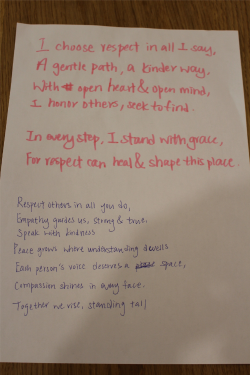 I choose respect in all I say,
A gentle path, a kinder way,
With open heart & open mind,
I honor others, seek to find.
In every step, I stand with grace,
For respect can heal & shape this place.
Respect others in all you do,
Empathy guides us, strong & true.
Speak with kindness
Peace grows where understanding dwells
Each person's voice deserves a space,
Compassion shines in every face.
Together we rise, standing tall